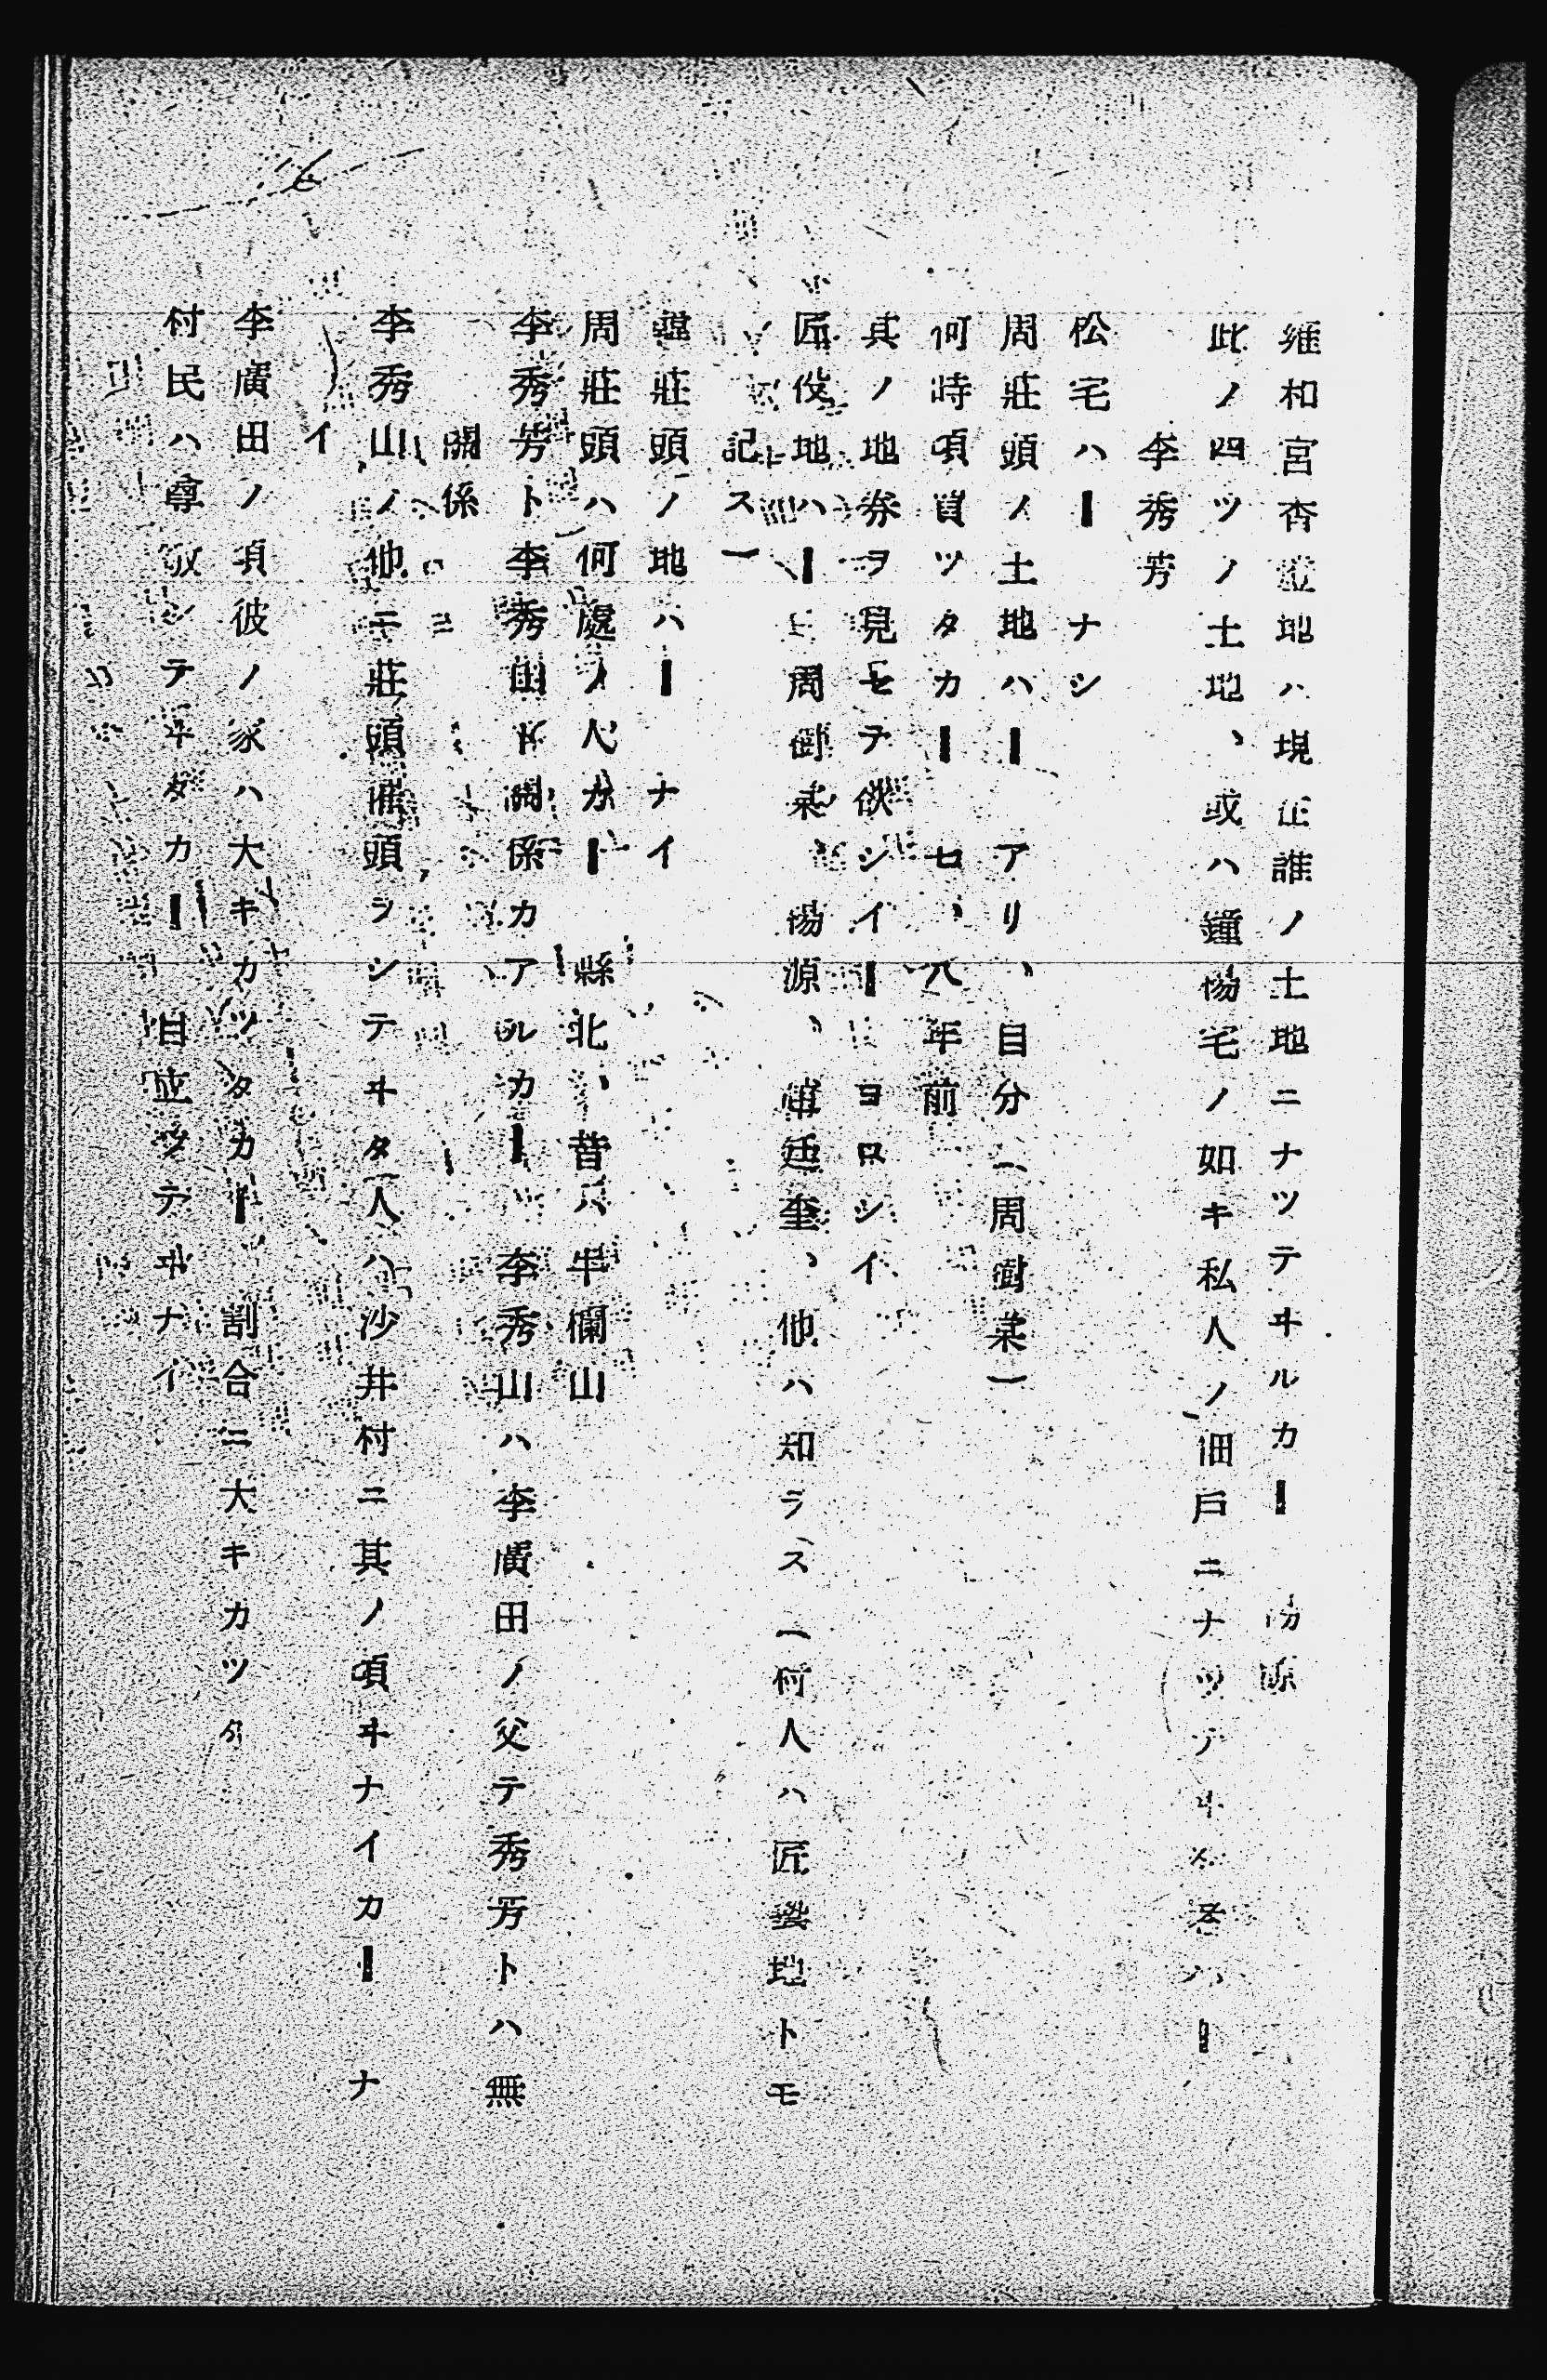 雍和宮香燈地ハ現在誰ノ土地ニナツテヰルカー　楊源
此ノ四ツノ土地、或ハ鐘楊宅ノ如キ私人ノ佃戸ニナツテヰル者ハー
李秀芳
松宅ハー　ナシ
周莊頭ノ土地ハー　アリ、自分（周樹棻）
何時頃買ツタカー　七、八年前
其ノ地券ヲ見セテ欲シイー　ヨロシイ
匠役地ハー　周樹棻、楊源、趙廷奎、他ハ知ラス（村人ハ匠藝地トモ
記ス）
趙莊頭ノ地ハー　ナイ
周莊頭ハ何處ノ人カー　縣北、昔ハ牛欄山
李秀芳ト李秀山ト關係カアルカー　李秀山ハ李廣田ノ父テ秀芳トハ無
關係
李秀山ノ他ニ莊頭催頭ヲシテヰタ人ハ沙井村ニ其ノ頃ヰナイカー　ナ
イ
李廣田ノ頃彼ノ家ハ大キカツタカー　割合ニ大キカツタ
村民ハ尊敬シテヰタカー　目立ツテヰナイ